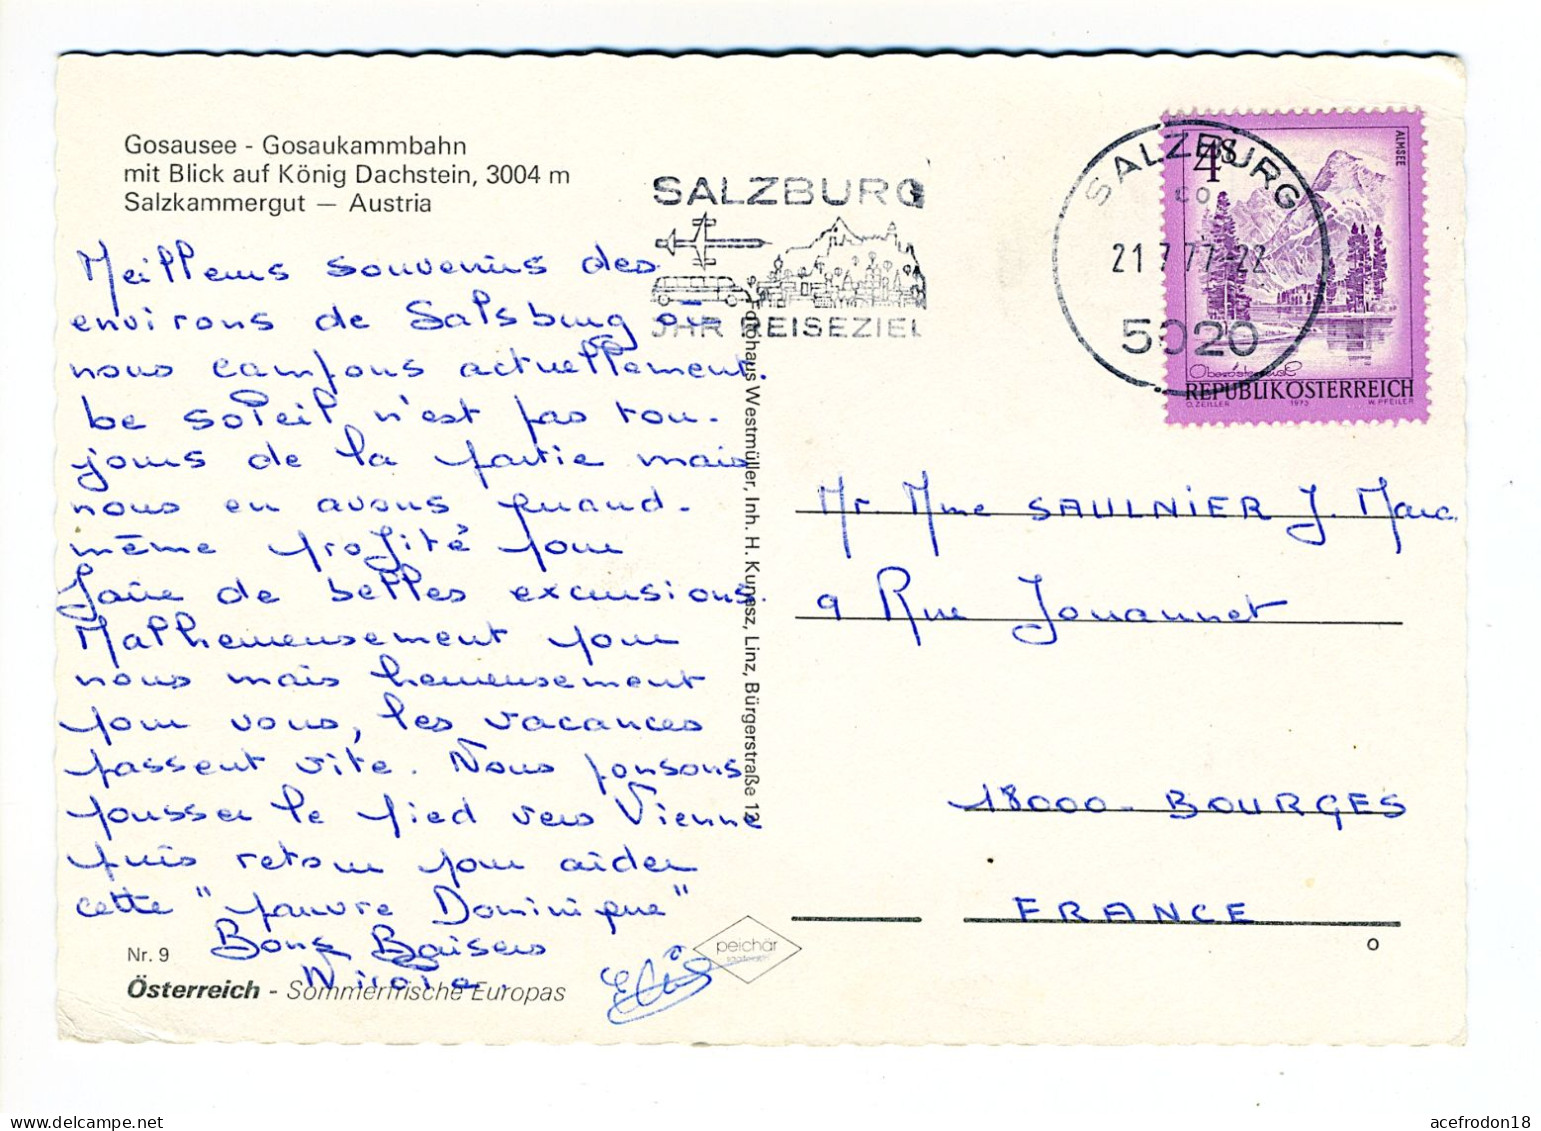 Gosausee - Gosaukammbahn
mit Blick auf König Dachstein, 3004 m
Salzkammergut — Austria
Meilleurs souvenirs des
environs de Salsburg où
nous campons actuellement.
be soleil n'est pas tou-
jours de la partie mais
nous en avons quand-
même profité pour
faire de belles excursions.
Malheureusement pour
nous mais heureusement
pour vous, les vacances
passent vite. Nous pensons
pousser le pied vers Vienne
puis retour pour aider
cette "pauvre Dominique"
Bons Baisers
Nr. 9
Österreich - Sommerfrische Europas
Fotohaus Westmüller, Inh. H. Kunesz, Linz, Bürgerstraße 12
peichär
SALZBURG
JHR REISEZIEL
SALZBURG
21 7.77-22
5020
4
S
ALMSEE
Oberösterreich
REPUBLIK ÖSTERREICH
O. ZEILLER 1973 W. PFEILER
Mr. Mme SAULNiER J. Marc
9 Rue Jouannet
18000 - BOURGES
FRANCE
acefrodon18
delcampe.net